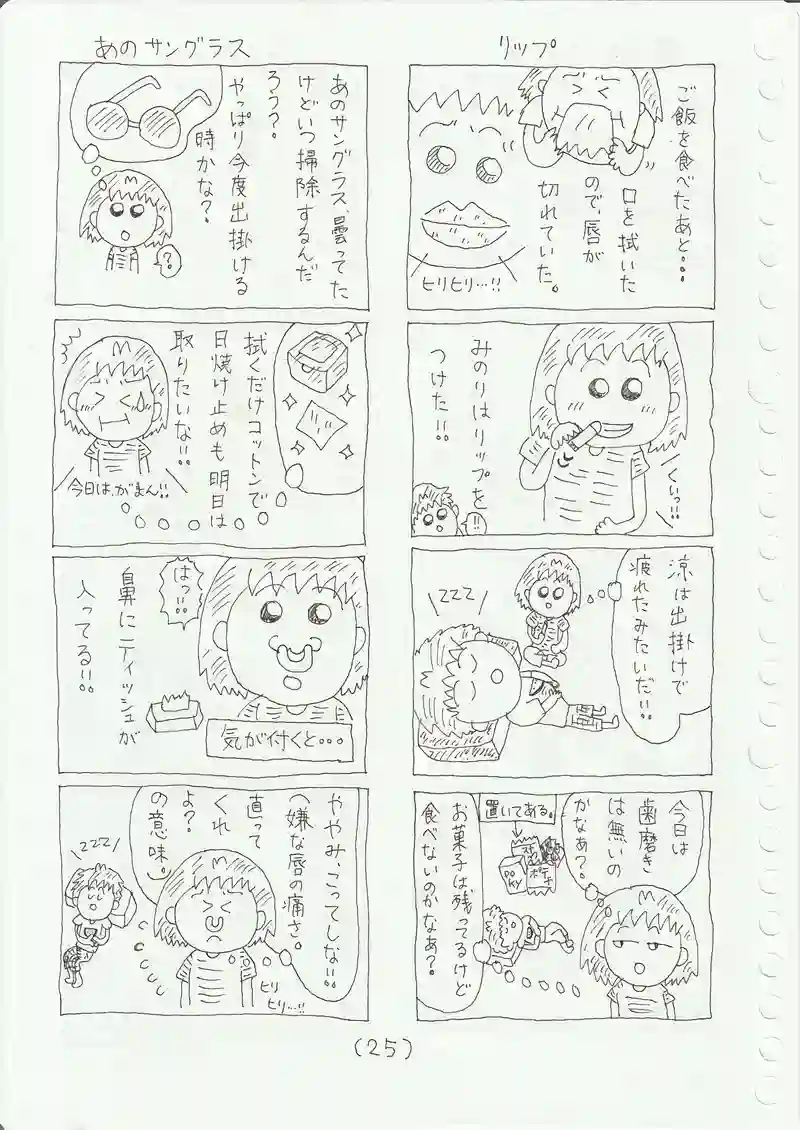 リップ
ご飯を食べたあと…
口を拭いた
ので、唇が
切れていた。
ヒリヒリ…!!
みのりはリップを
つけた!!
くいっ!!
!!
涼は出掛けで
疲れたみたいだ!!
ZZZ
今日は
歯磨き
は無いの
かなあ?
置いてある。
PO
KY
ポテチ
お菓子は、残ってるけど
食べないのかなあ?
あのサングラス
あのサングラス曇ってた
けどいつ掃除するんだ
ろう?。
やっぱり今度出掛ける
時かな?
?
拭くだけコットンで
日焼け止めも明日は
取りたいな!!
今日は、がまん!!
はっ!!
鼻にティッシュが
入ってる!!
気が付くと…
ややみ、こってしな!!
(嫌な唇の痛さ。
直って
くれ
よ?
の意味。)
ZZZ
ヒリ
ヒリ…!!
(25)